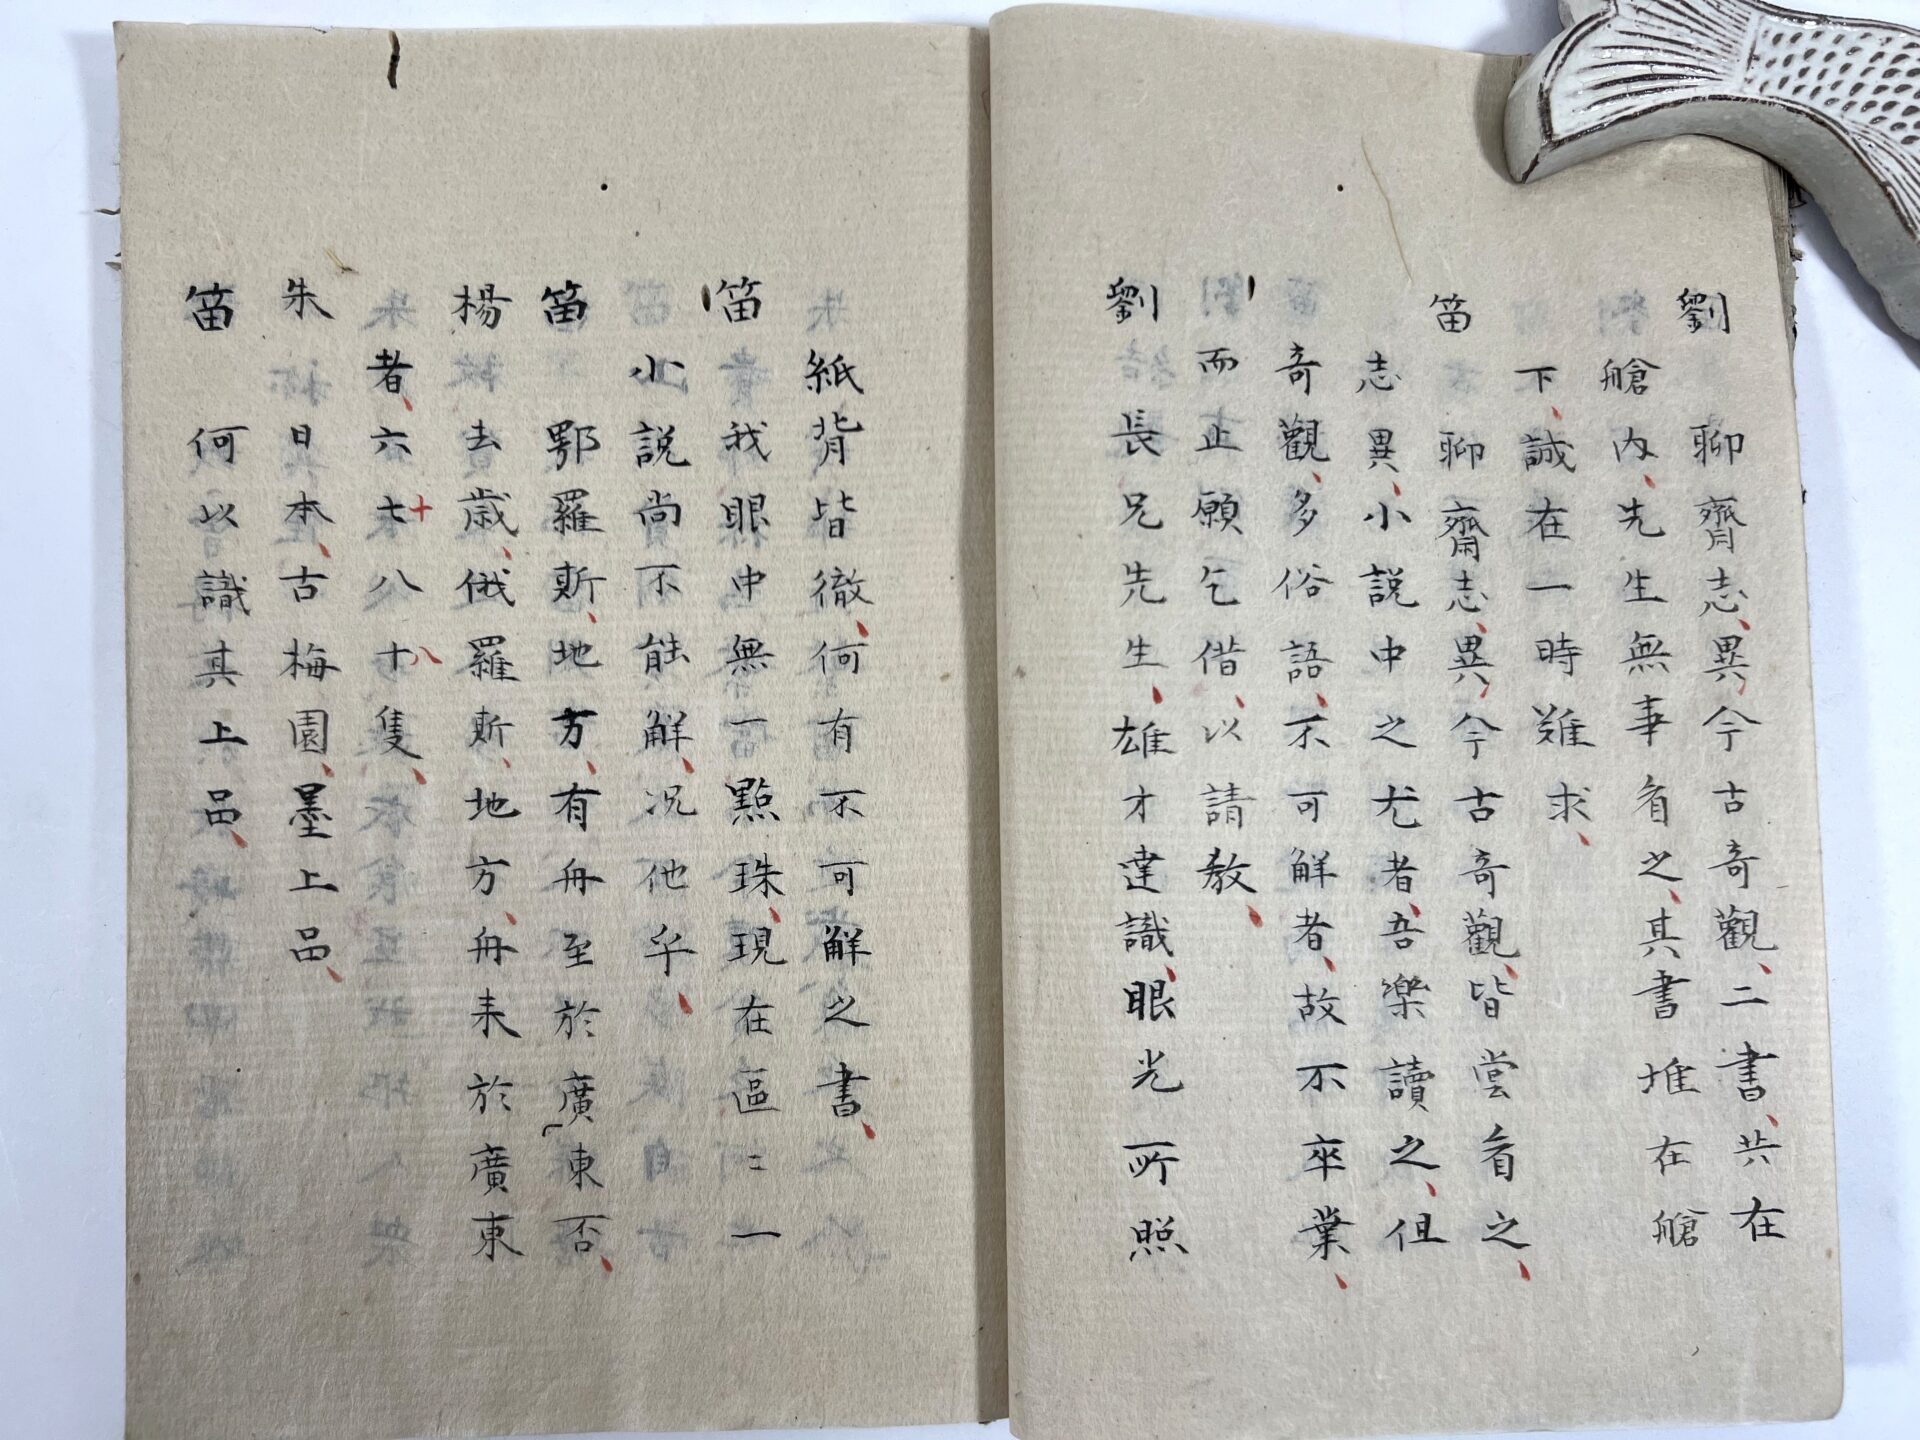 劉　聊齊志、異、今古奇觀、二書、共在
艙內、先生無事看之、其書堆在艙
下、誠在一時難求、
笛　聊齋志、異、今古奇觀、皆嘗看之、
志異、小説中之尤者、吾樂讀之、但
奇觀、多俗語、不可解者、故不卒業、
而止願乞借、以請教、
劉　長兄先生、雄才達識、眼光所照
紙背皆徹、何有不可解之書、
笛　我眼中無一點珠、現在區〻一
小説尚不能解、况他乎、
笛　鄂羅斯、地方、有舟至於廣東否、
楊　去歲、俄羅斯、地方、舟来於廣東
者、六七十八八十隻、
朱　日本、古梅園、墨上品、
笛　何以識其上品、